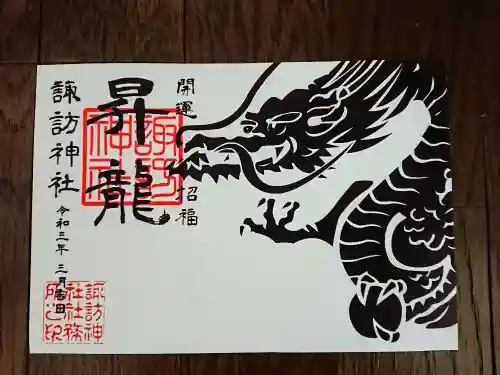 開運
招福
昇龍
諏訪神社
令和三年 三月吉日
諏訪神社
諏訪神
社社務
所之印